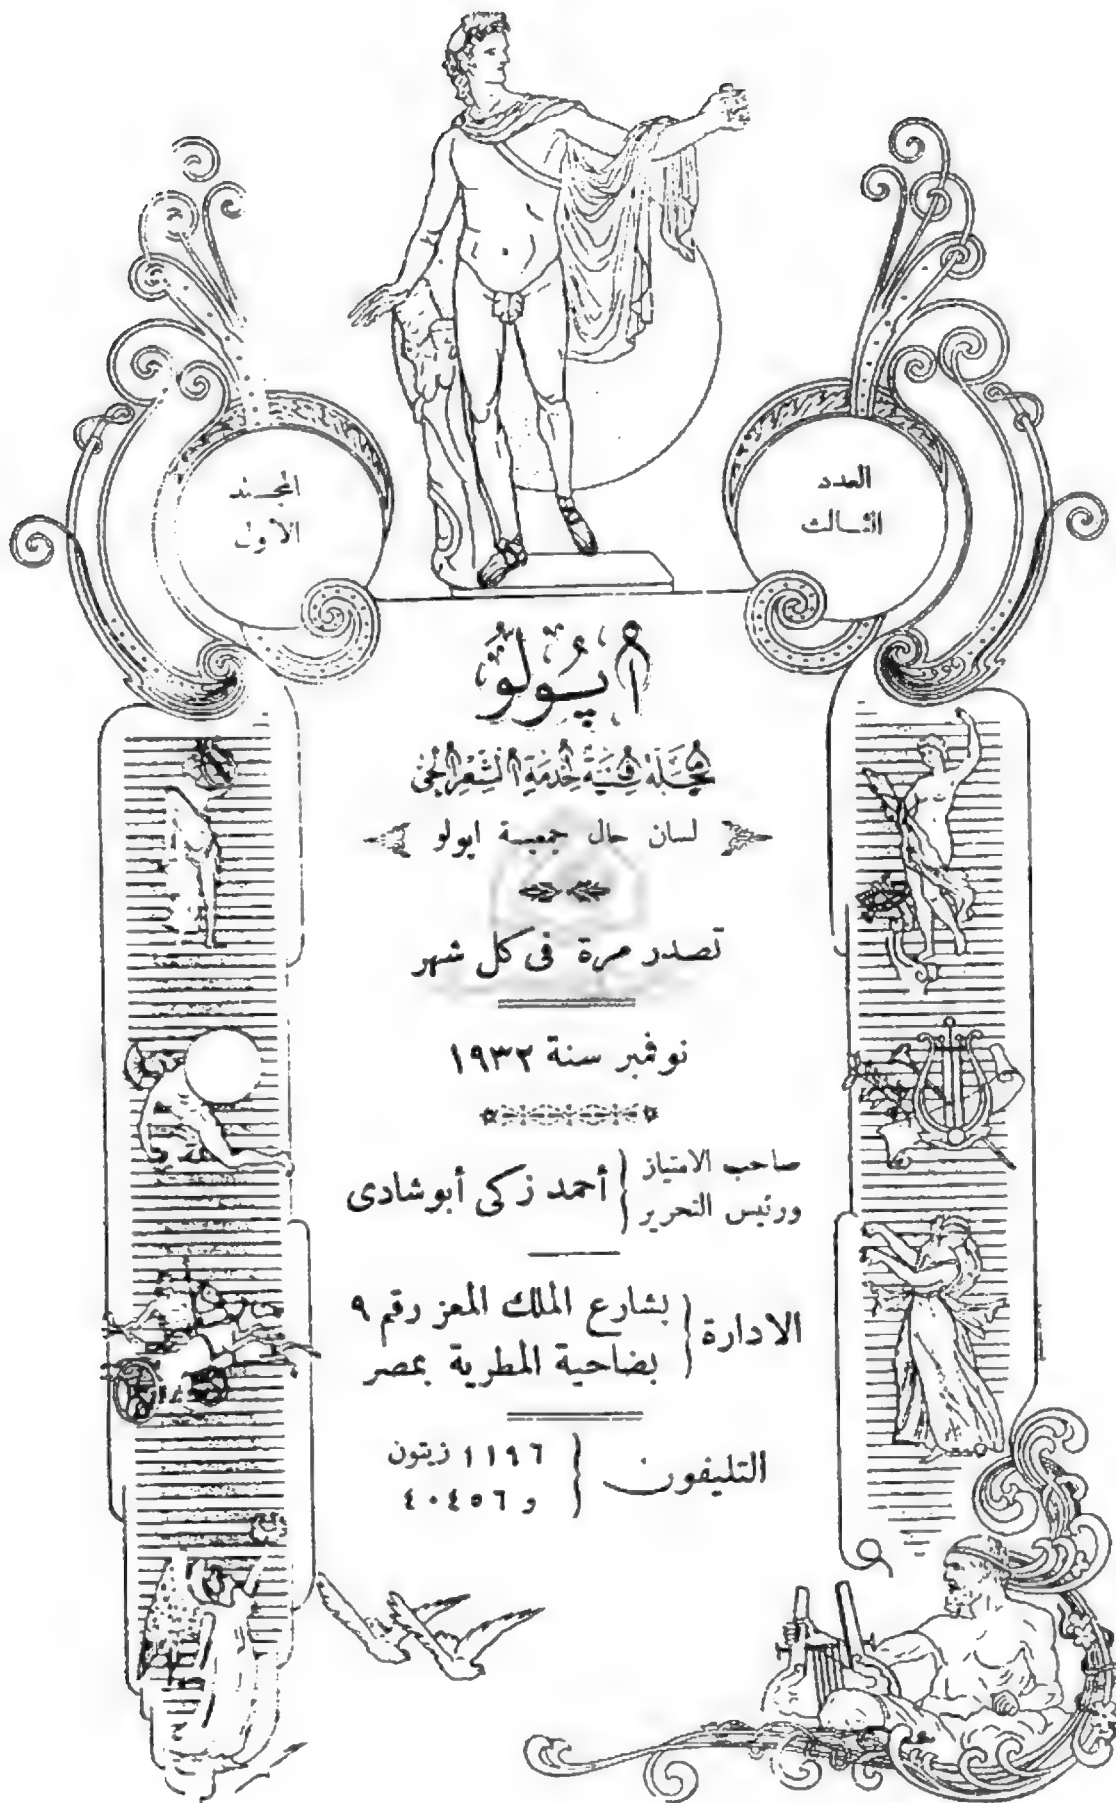 العدد
الثالث
المجلد
الأول
أپولو
مجلة فنية لخدمة الشعر الحي
لسان حال جمعية اپولو
تصدر مرة فى كل شهر
نوفمبر سنة ١٩٣٢
صاحب الامتياز
ورئيس التحرير
أحمد زكى أبو شادى
الادارة
بشارع الملك المعز رقم ٩
بضاحية المطرية بمصر
التليفون
١١٩٦ زيتون
و ٤٠٤٥٦